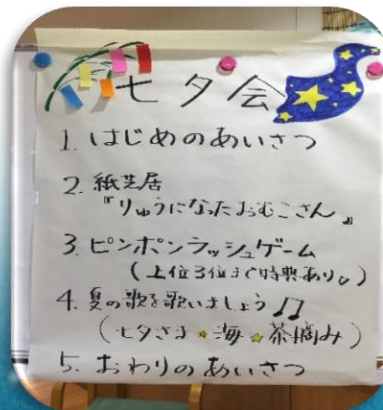 七夕会
1. はじめのあいさつ
2. 紙芝居
『りゅうになったおむこさん』
3. ピンポンラッシュゲーム
(上位3位まで特典あり♡)
4. 夏の歌を歌いましょう♪♫
(七夕さま★海★茶摘み)
5. おわりのあいさつ